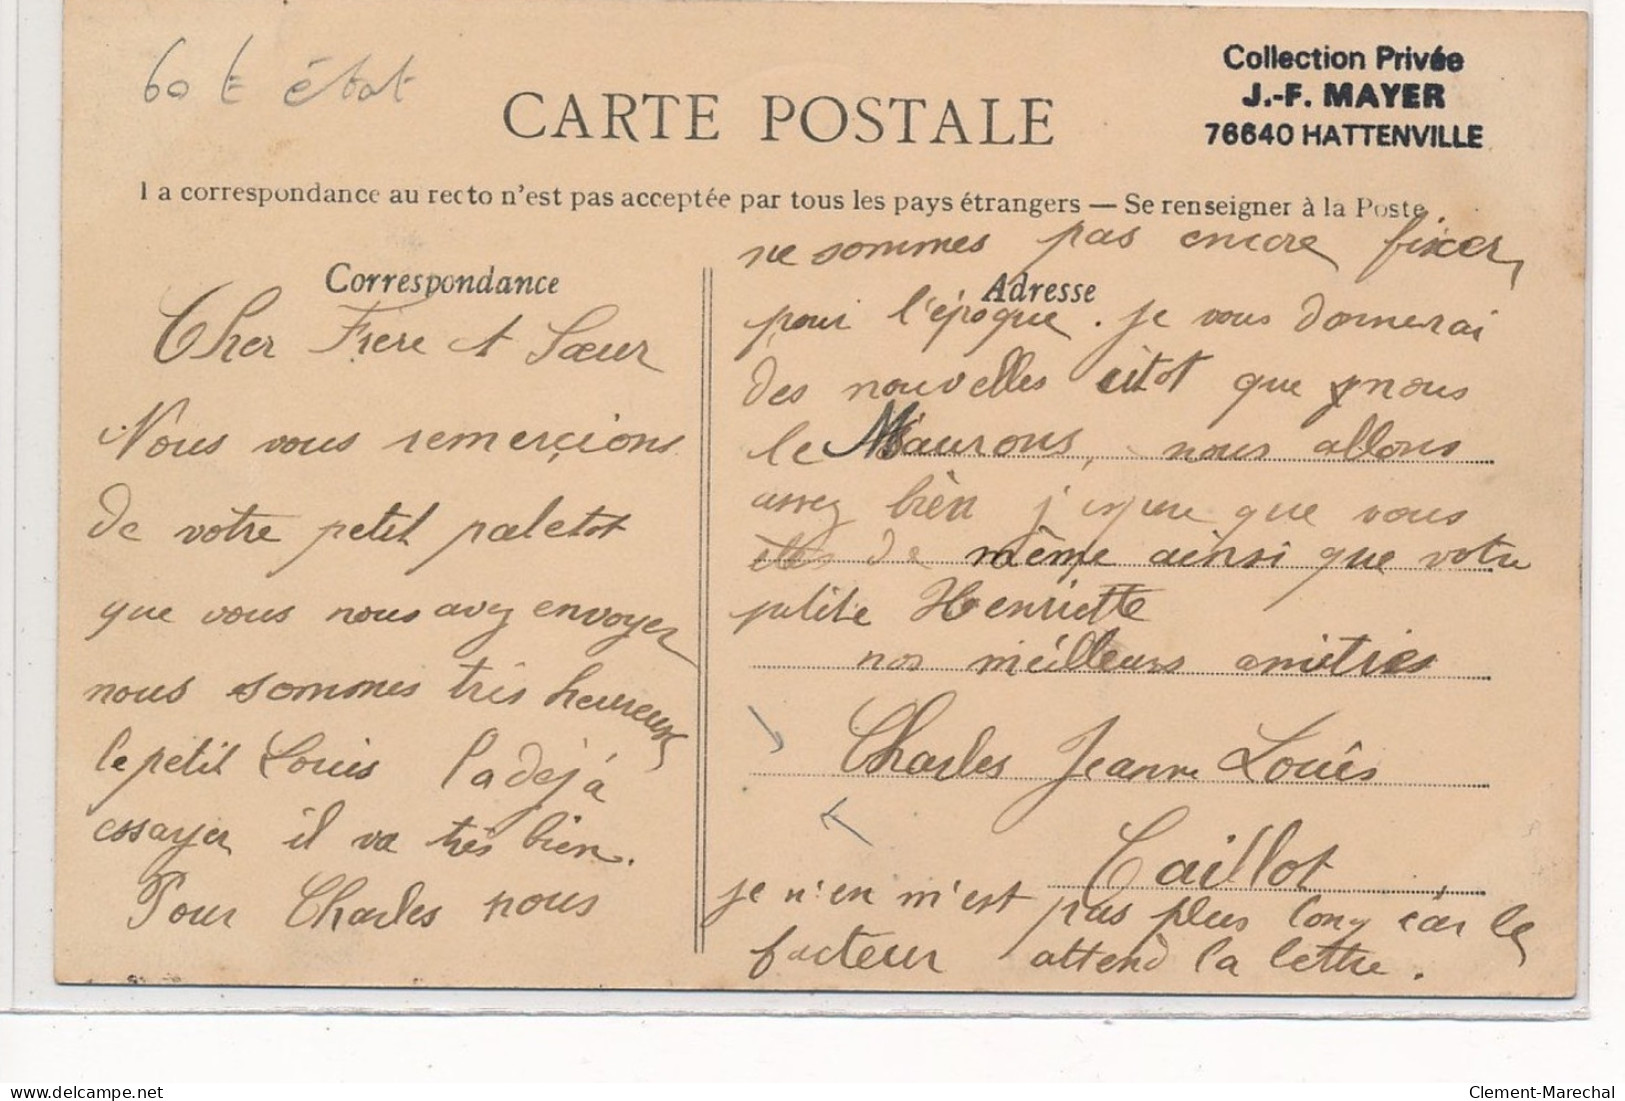 60 t état
CARTE POSTALE
Collection Privée
J.-F. MAYER
76640 HATTENVILLE
La correspondance au recto n'est pas acceptée par tous les pays étrangers — Se renseigner à la Poste
Correspondance
Cher Frère et Sœur
Nous vous remerçions
de votre petit paletot
que vous nous avez envoyer
nous sommes très heureux
le petit Louis l'a dejà
essayer il va très bien.
Pour Charles nous
Adresse
ne sommes pas encore fixer,
pour l'époque. je vous donnerai
des nouvelles sitot que nous
le Saurons, nous allons
assez bien j'espere que vous
êtes de même ainsi que votre
petite Henriette
nos meilleurs amitiés
Charles Jeanne Louis
Caillot
je n'en m'est pas plus long car le
facteur attend la lettre.
delcampe.net
Clement-Marechal